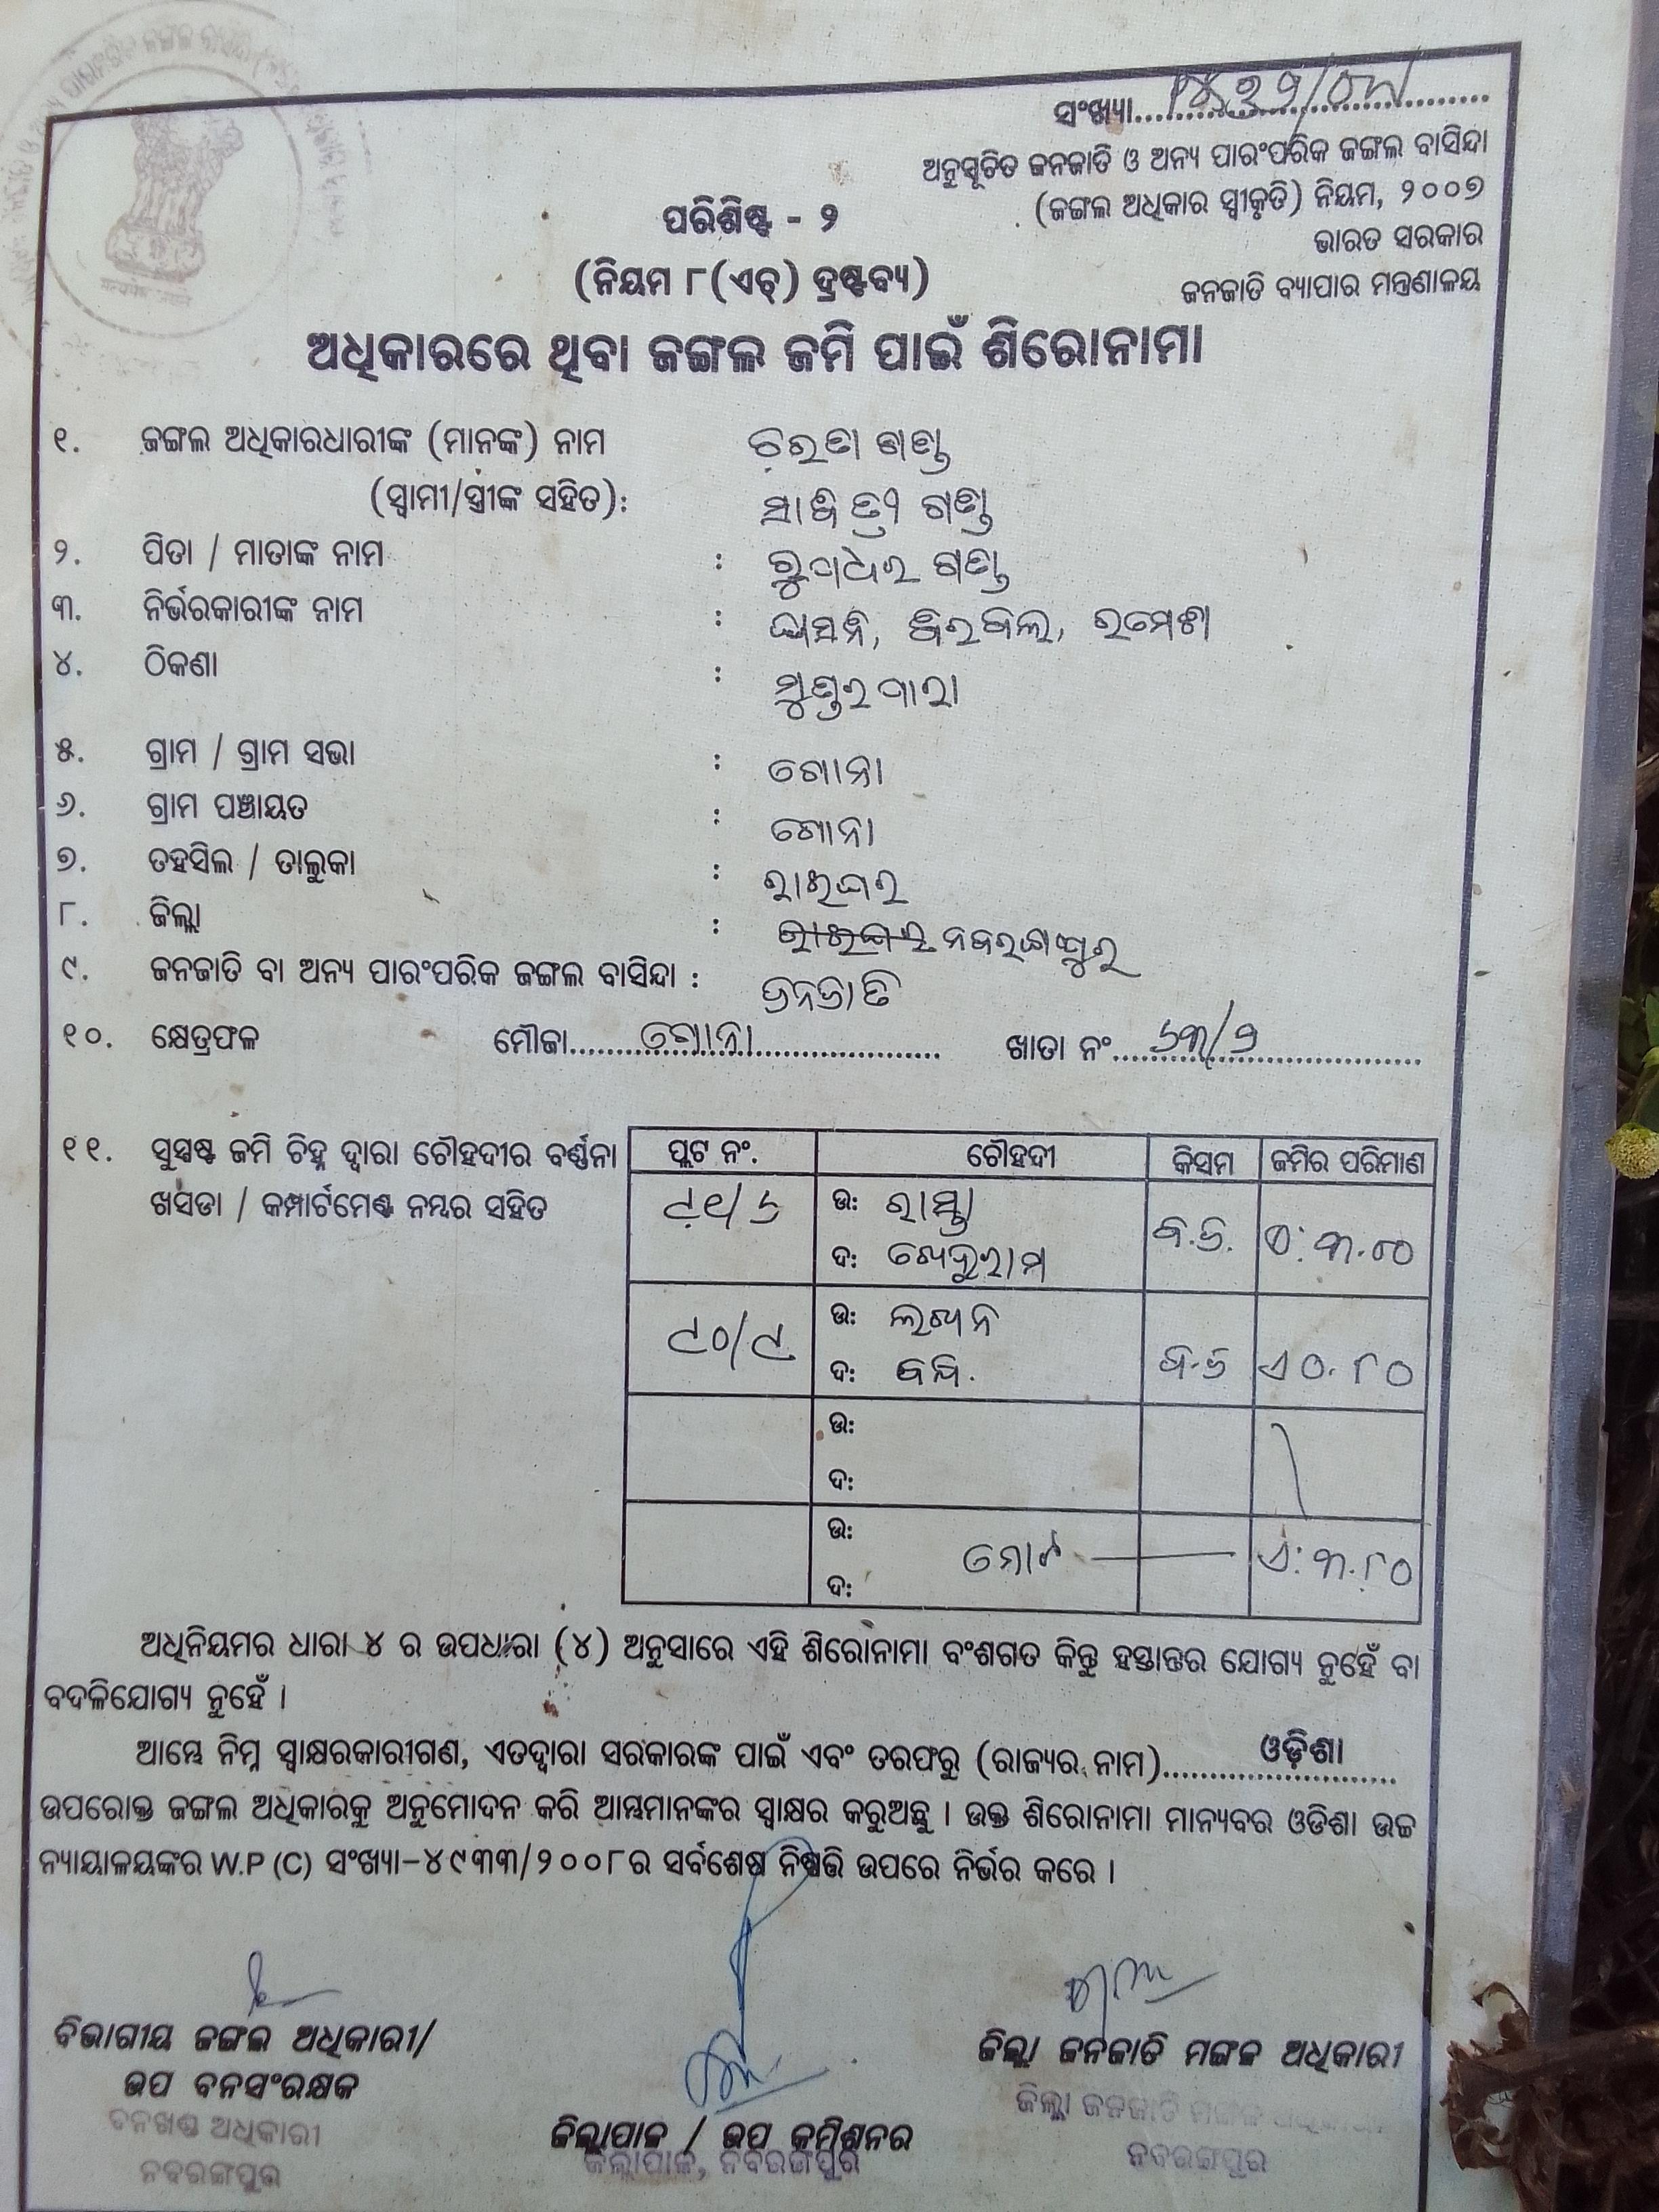 ସଂଖ୍ୟା
ଅନୁସୂଚିତ ଜନଜାତି ଓ ଅନ୍ୟ ପାରଂପରିକ ଜଙ୍ଗଲ ବାସିନ୍ଦା
(ଜଙ୍ଗଲ ଅଧିକାର ସ୍ୱୀକୃତି) ନିୟମ, ୨୦୦୭
ଭାରତ ସରକାର
ଜନଜାତି ବ୍ୟାପାର ମନ୍ତ୍ରଣାଳୟ
ପରିଶିଷ୍ଟ - ୨
(ନିୟମ ୮(ଏଚ୍) ଦ୍ରଷ୍ଟବ୍ୟ)
ଅଧିକାରରେ ଥିବା ଜଙ୍ଗଲ ଜମି ପାଇଁ ଶିରୋନାମା
୧. ଜଙ୍ଗଲ ଅଧିକାରଧାରୀଙ୍କ (ମାନଙ୍କ) ନାମ ଗଣ୍ଡ
(ସ୍ୱାମୀ/ସ୍ତ୍ରୀଙ୍କ ସହିତ): ଗଣ୍ଡ
୨. ପିତା / ମାତାଙ୍କ ନାମ : ଗଣ୍ଡ
୩. ନିର୍ଭରକାରୀଙ୍କ ନାମ :
୪. ଠିକଣା : ମୁଣ୍ଡରପାରା
୫. ଗ୍ରାମ / ଗ୍ରାମ ସଭା : ଗୋନା
୬. ଗ୍ରାମ ପଞ୍ଚାୟତ : ଗୋନା
୭. ତହସିଲ / ତାଲୁକା : ରାଇଘର
୮. ଜିଲ୍ଲା : ରାଇଘର ନବରଙ୍ଗପୁର
୯. ଜନଜାତି ବା ଅନ୍ୟ ପାରଂପରିକ ଜଙ୍ଗଲ ବାସିନ୍ଦା : ଜନଜାତି
୧୦. କ୍ଷେତ୍ରଫଳ ମୌଜା ଗୋନା ଖାତା ନଂ ୬୩/୨
୧୧. ସୁସ୍ପଷ୍ଟ ଜମି ଚିହ୍ନ ଦ୍ୱାରା ଚୌହଦୀର ବର୍ଣ୍ଣନା
ଖସଡା / କମ୍ପାର୍ଟମେଣ୍ଟ ନମ୍ବର ସହିତ
ପ୍ଲଟ ନଂ. ଚୌହଦୀ କିସମ ଜମିର ପରିମାଣ
୯୧/୬ ଉ: ରାସ୍ତା
ଦ: ଖେଦୁରାମ
୯୦/୯ ଉ: ଲଖନ
ଦ:
ଏ ୦.୮୦
ଉ:
ଦ:
ଉ:
ମୋଟ ଏ: ୩.୮୦
ଦ:
ଅଧିନିୟମର ଧାରା ୪ ର ଉପଧାରା (୪) ଅନୁସାରେ ଏହି ଶିରୋନାମା ବଂଶଗତ କିନ୍ତୁ ହସ୍ତାନ୍ତର ଯୋଗ୍ୟ ନୁହେଁ ବା
ବଦଳିଯୋଗ୍ୟ ନୁହେଁ ।
ଆମ୍ଭେ ନିମ୍ନ ସ୍ୱାକ୍ଷରକାରୀଗଣ, ଏତଦ୍ଦ୍ୱାରା ସରକାରଙ୍କ ପାଇଁ ଏବଂ ତରଫରୁ (ରାଜ୍ୟର ନାମ) ଓଡ଼ିଶା
ଉପରୋକ୍ତ ଜଙ୍ଗଲ ଅଧିକାରକୁ ଅନୁମୋଦନ କରି ଆମ୍ଭମାନଙ୍କର ସ୍ୱାକ୍ଷର କରୁଅଛୁ । ଉକ୍ତ ଶିରୋନାମା ମାନ୍ୟବର ଓଡିଶା ଉଚ୍ଚ
ନ୍ୟାୟାଳୟଙ୍କର W.P (C) ସଂଖ୍ୟା-୪୯୩୩/୨୦୦୮ର ସର୍ବଶେଷ ନିଷ୍ପତ୍ତି ଉପରେ ନିର୍ଭର କରେ ।
ବିଭାଗୀୟ ଜଙ୍ଗଲ ଅଧିକାରୀ/
ଉପ ବନସଂରକ୍ଷକ
ବନଖଣ୍ଡ ଅଧିକାରୀ
ନବରଙ୍ଗପୁର
ଜିଲ୍ଲାପାଳ / ଉପ କମିଶନର
ଜିଲ୍ଲାପାଳ, ନବରଙ୍ଗପୁର
ଜିଲ୍ଲା ଜନଜାତି ମଙ୍ଗଳ ଅଧିକାରୀ
ଜିଲ୍ଲା ଜନଜାତି ମଙ୍ଗଳ
ନବରଙ୍ଗପୁର